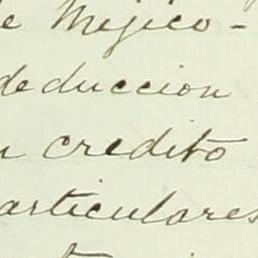 e Mejico-
deduccion
n credito
articulares